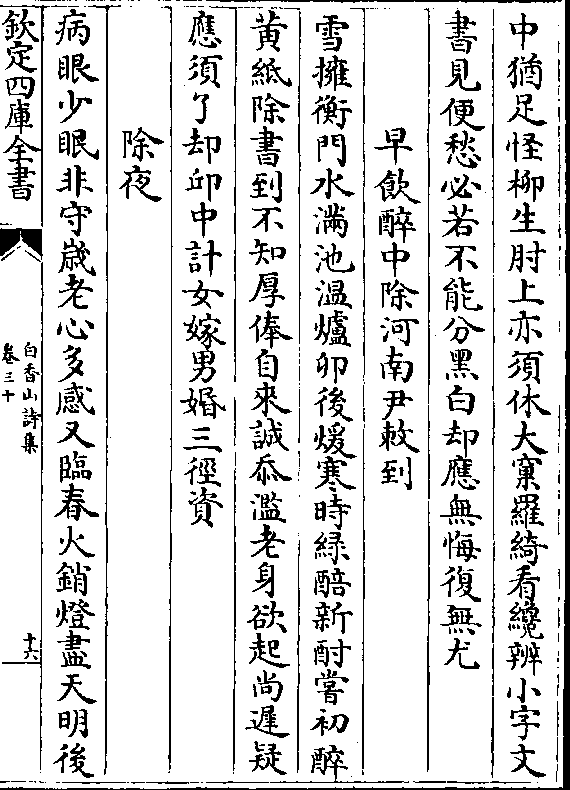 中猶足怪柳生肘上亦須休大窠羅綺看纔辨小字文
書見便愁必若不能分黑白却應無悔復無尤
早飲醉中除河南尹敕到
雪擁衡門水滿池温爐卯後煖寒時緑醅新酎嘗初醉
黄紙除書到不知厚俸自來誠忝濫老身欲起尚遲疑
應須了却丘中計女嫁男婚三徑資
除夜
病眼少眠非守歳老心多感又臨春火銷燈盡天明後
欽定四庫全書
白香山詩集
卷三十
十六